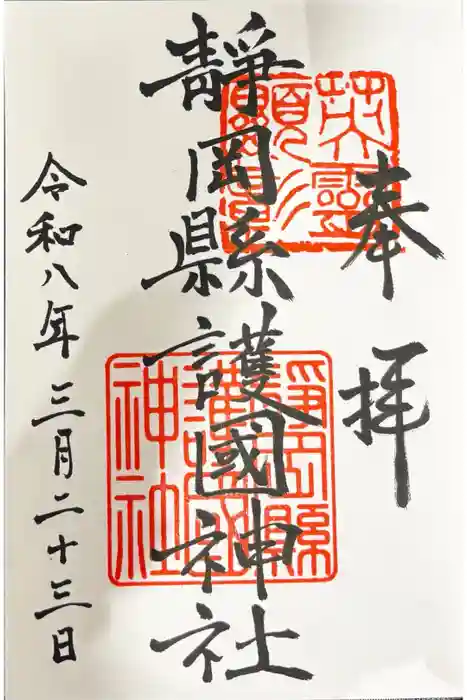 奉拝
靜岡縣護國神社
令和八年三月二十三日
英靈顕彰
靜岡縣護國神社